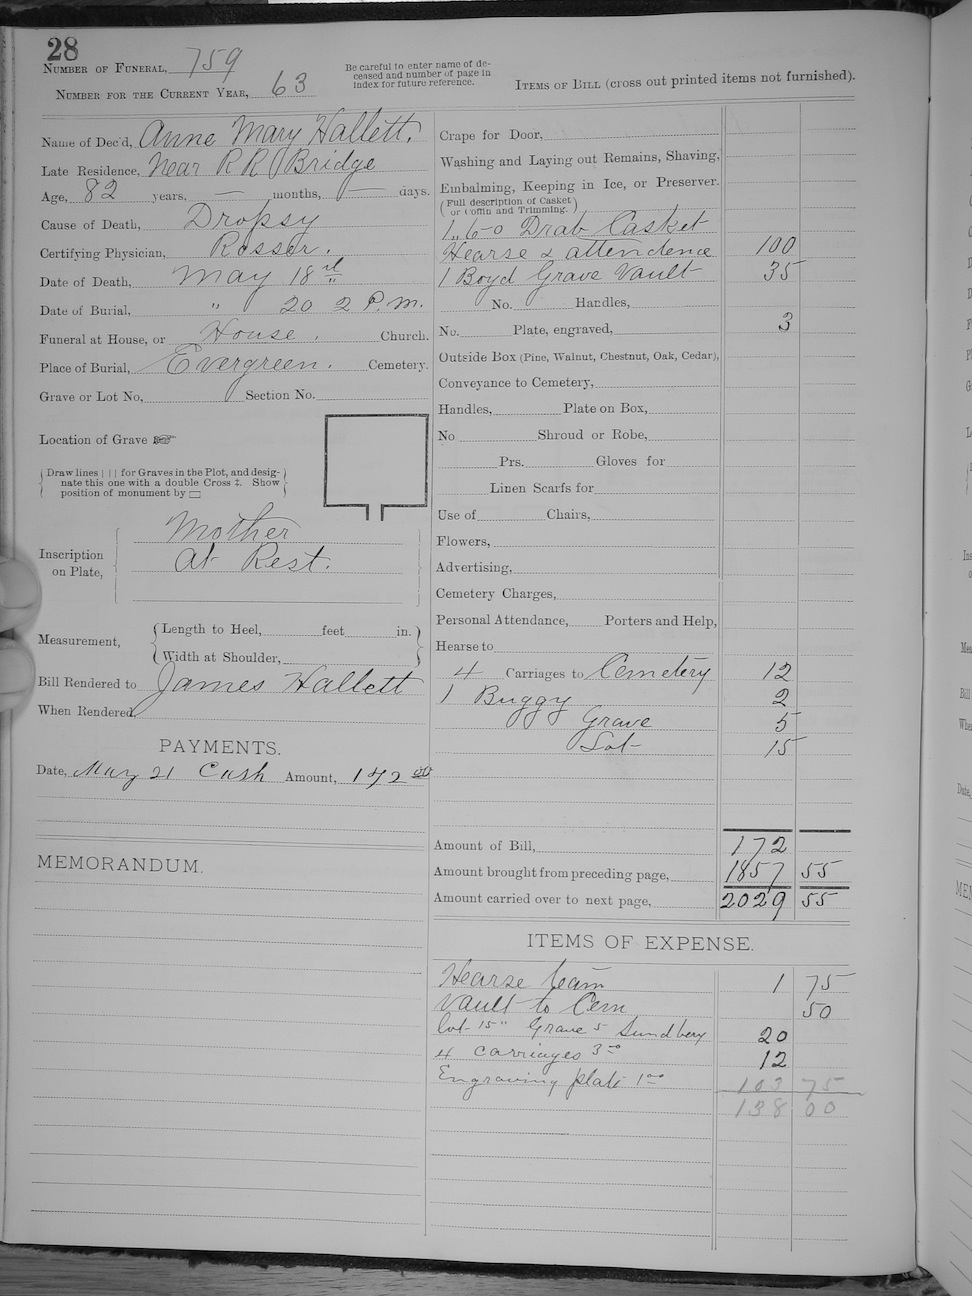 28
Number of Funeral, 759
Number for the Current Year, 63
Be careful to enter name of de-
ceased and number of page in
index for future reference.
Items of Bill (cross out printed items not furnished).
Name of Dec'd, Anne Mary Hallett.
Late Residence, Near R R Bridge
Age, 82 years, — months, — days.
Cause of Death, Dropsy
Certifying Physician, Rosser.
Date of Death, May 18
Date of Burial, " 20 2 P.M.
Funeral at House, or House. Church.
Place of Burial, Evergreen. Cemetery.
Grave or Lot No, Section No.
Location of Grave ☞
Draw lines | | | for Graves in the Plot, and desig-
nate this one with a double Cross ‡. Show
position of monument by ▭
Inscription
on Plate,
Mother
At Rest.
Measurement,
Length to Heel, feet in.
Width at Shoulder,
Bill Rendered to James Hallett
When Rendered,
PAYMENTS.
Date, May 21 Cash Amount, 172 00
MEMORANDUM.
Crape for Door,
Washing and Laying out Remains, Shaving,
Embalming, Keeping in Ice, or Preserver.
(Full description of Casket
or Coffin and Trimming.)
1, 6-0 Drab Casket
Hearse & attendence 100
1 Boyd Grave Vault 35
No. Handles,
No. Plate, engraved, 3
Outside Box (Pine, Walnut, Chestnut, Oak, Cedar),
Conveyance to Cemetery,
Handles, Plate on Box,
No Shroud or Robe,
Prs. Gloves for
Linen Scarfs for
Use of Chairs,
Flowers,
Advertising,
Cemetery Charges,
Personal Attendance, Porters and Help,
Hearse to
4 Carriages to Cemetery 12
1 Buggy 2
Grave 5
Lot 15
Amount of Bill, 172
Amount brought from preceding page, 1857 55
Amount carried over to next page, 2029 55
ITEMS OF EXPENSE.
Hearse team 1 75
Vault to Cem 50
Lot 15 " Grave 5 Sundbery 20
4 carriages 3 00 12
Engraving plate 1 00
103 75
138 00